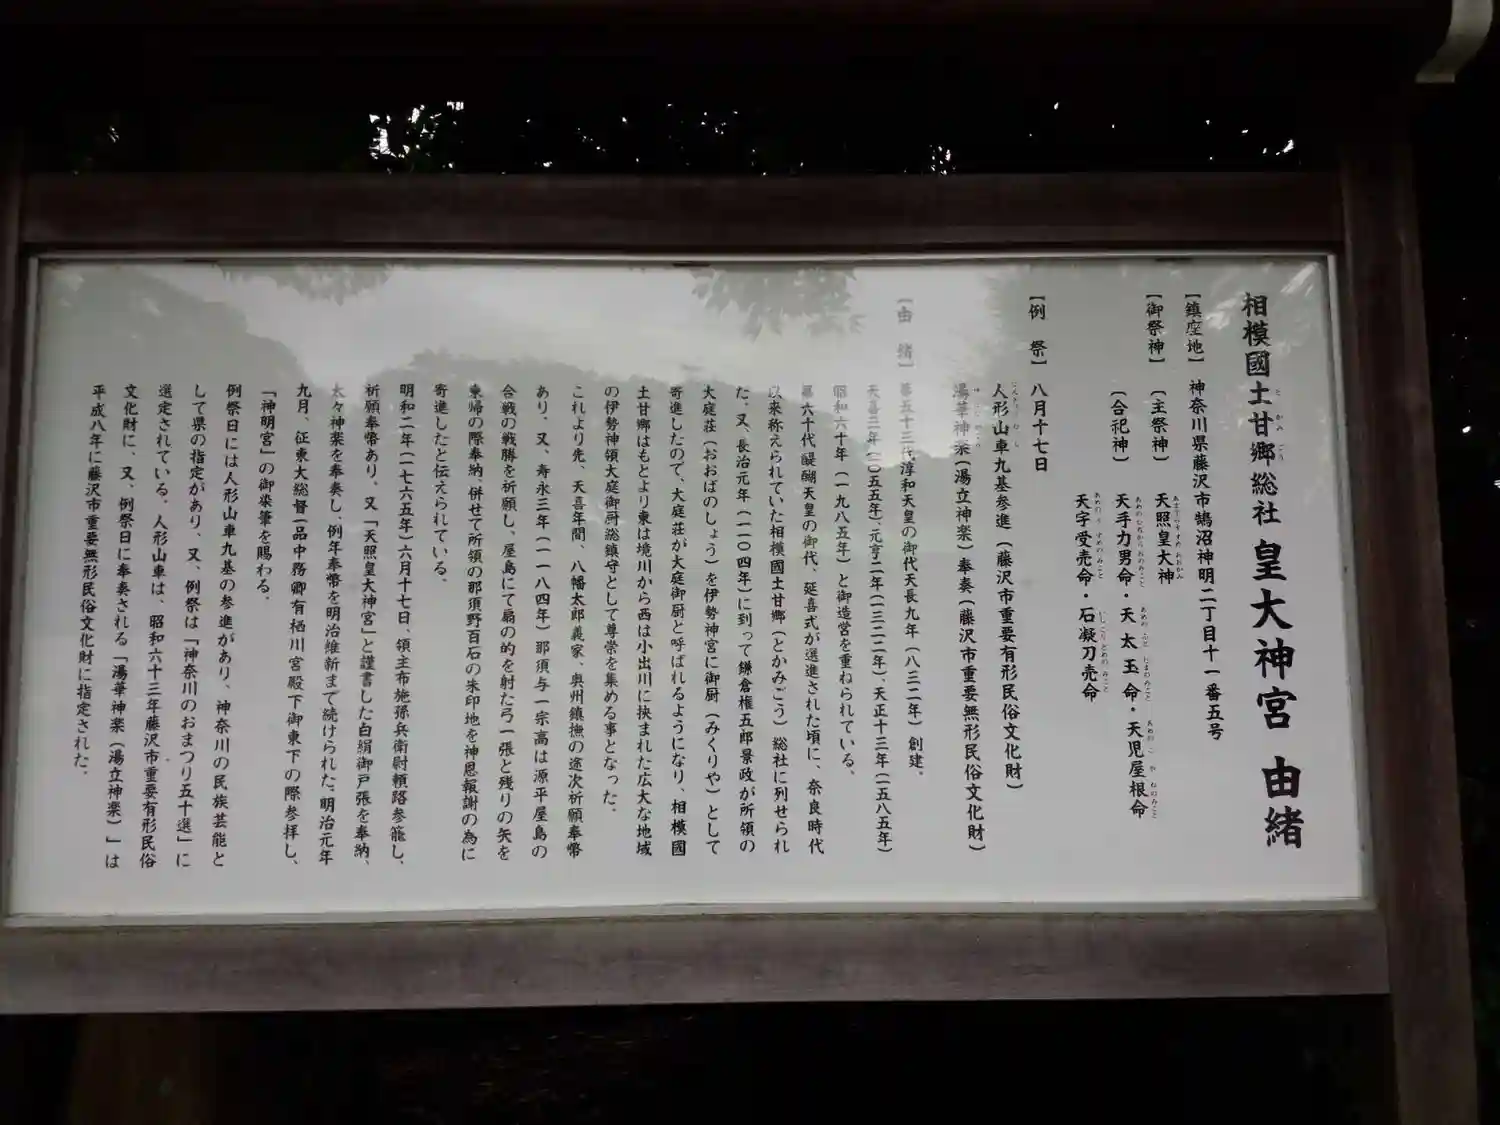 相模國土甘郷総社 皇大神宮 由緒
とかみごう
【鎮座地】 神奈川県藤沢市鵠沼神明二丁目十一番五号
【御祭神】 〔主祭神〕 天照皇大神
あまてらすすめおおかみ
〔合祀神〕 天手力男命・天太玉命・天児屋根命
あめのたぢからおのみこと あめのふとたまのみこと あめのこやねのみこと
天宇受売命・石凝刀売命
あめのうずめのみこと いしこりとめのみこと
【例 祭】 八月十七日
人形山車九基参進（藤沢市重要有形民俗文化財）
湯華神楽（湯立神楽）奉奏（藤沢市重要無形民俗文化財）
【由 緒】 第五十三代淳和天皇の御代天長九年（八三二年）創建。
天喜三年（一〇五五年）、元亨二年（一三二二年）、天正十三年（一五八五年）
昭和六十年（一九八五年）と御造営を重ねられている。
第六十代醍醐天皇の御代、延喜式が選進された頃に、奈良時代
以来称えられていた相模國土甘郷（とかみごう）総社に列せられ
た。又、長治元年（一一〇四年）に到って鎌倉権五郎景政が所領の
大庭荘（おおばのしょう）を伊勢神宮に御厨（みくりや）として
寄進したので、大庭荘が大庭御厨と呼ばれるようになり、相模國
土甘郷はもとより東は境川から西は小出川に挟まれた広大な地域
の伊勢神領大庭御厨総鎮守として尊崇を集める事となった。
これより先、天喜年間、八幡太郎義家、奥州鎮撫の途次祈願奉幣
あり、又、寿永三年（一一八四年）那須与一宗高は源平屋島の
合戦の戦勝を祈願し、屋島にて扇の的を射た弓一張と残りの矢を
東帰の際奉納、併せて所領の那須野百石の朱印地を神恩報謝の為に
寄進したと伝えられている。
明和二年（一七六五年）六月十七日、領主布施孫兵衛尉頼路参籠し、
祈願奉幣あり、又「天照皇大神宮」と謹書した白絹御戸張を奉納、
太々神楽を奉奏し、例年奉幣を明治維新まで続けられた。明治元年
九月、征東大総督一品中務卿有栖川宮殿下御東下の際参拝し、
「神明宮」の御染筆を賜わる。
例祭日には人形山車九基の参進があり、神奈川の民族芸能と
して県の指定があり、又、例祭は「神奈川のおまつり五十選」に
選定されている。人形山車は、昭和六十三年藤沢市重要有形民俗
文化財に、又、例祭日に奉奏される「湯華神楽（湯立神楽）」は
平成八年に藤沢市重要無形民俗文化財に指定された。